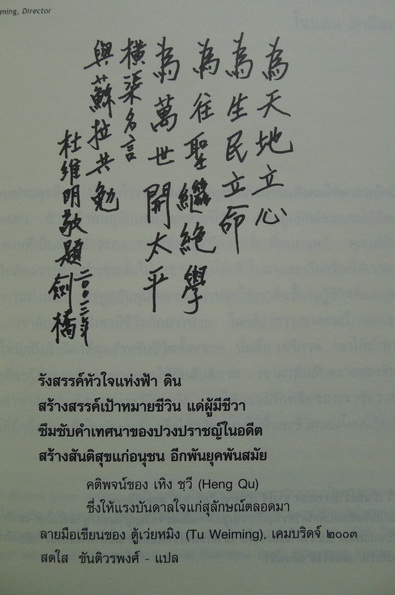 iming, Director
為天地立心
為生民立命
為往聖繼絕學
為萬世開太平
橫渠名言
與蘇拉共勉
杜維明敬題劍橋
รังสรรค์หัวใจแห่งฟ้า ดิน
สร้างสรรค์เป้าหมายชีวิน แด่ผู้มีชีวา
ซึมซับคำเทศนาของปวงปราชญ์ในอดีต
สร้างสันติสุขแก่อนุชน อีกพันยุคพันสมัย
คติพจน์ของ เหิง ชวี (Heng Qu)
ซึ่งให้แรงบันดาลใจแก่สุลักษณ์ตลอดมา
ลายมือเขียนของ ตู้เว่ยหมิง (Tu Weiming), เคมบริดจ์ ๒๐๐๓
สดใส ขันติวรพงศ์ - แปล